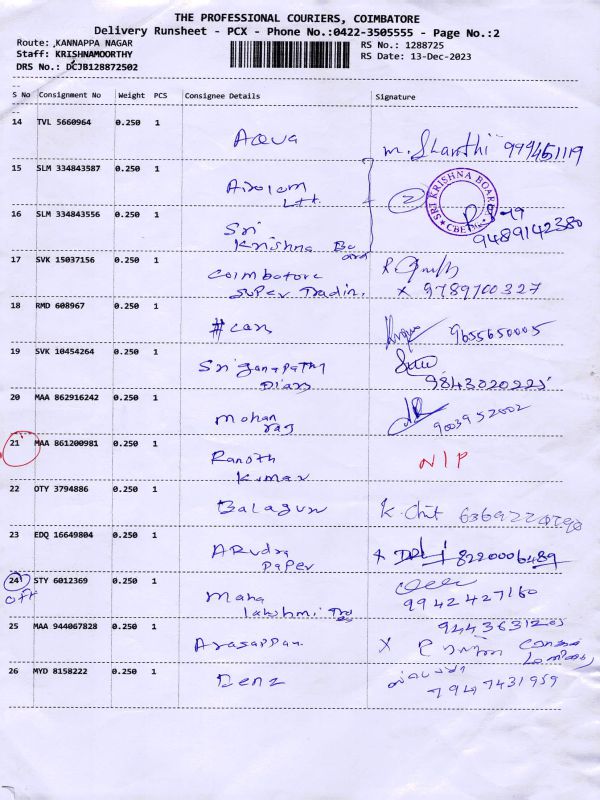 THE PROFESSIONAL COURIERS, COIMBATORE
Delivery Runsheet - PCX - Phone No.:0422-3505555 - Page No.:2
Route: ,KANNAPPA NAGAR
Staff: KRISHNAMOORTHY
DRS No.: DCJB128872502
RS No.: 1288725
RS Date: 13-Dec-2023
S No Consignment No Weight PCS Consignee Details Signature
14 TVL 5660964 0.250 1
AQUA m. Shanthi 9994451119
15 SLM 334843587 0.250 1
Airolam
Ltt
2
SRI KRISHNA BOARD
CBE
16 SLM 334843556 0.250 1
Sri
Krishna Bo
ard
9489142380
17 SVK 15037156 0.250 1
Coimbatore
Super Tradin.
x 9789700327
18 RMD 608967 0.250 1
#can 9655650005
19 SVK 10454264 0.250 1
Sri ganapathy
Diary
9843020225
20 MAA 862916242 0.250 1
mohan
raj
9003952002
21 MAA 861200981 0.250 1
Kumar
N/P
22 OTY 3794886 0.250 1
Balagun K. Chit
23 EDQ 16649804 0.250 1
ARudra
Paper
8220006489
24 STY 6012369 0.250 1
off
Maha
lakshmi
9942427160
25 MAA 944067828 0.250 1
Arasappan x
26 MYD 8158222 0.250 1
Benz
7947431959